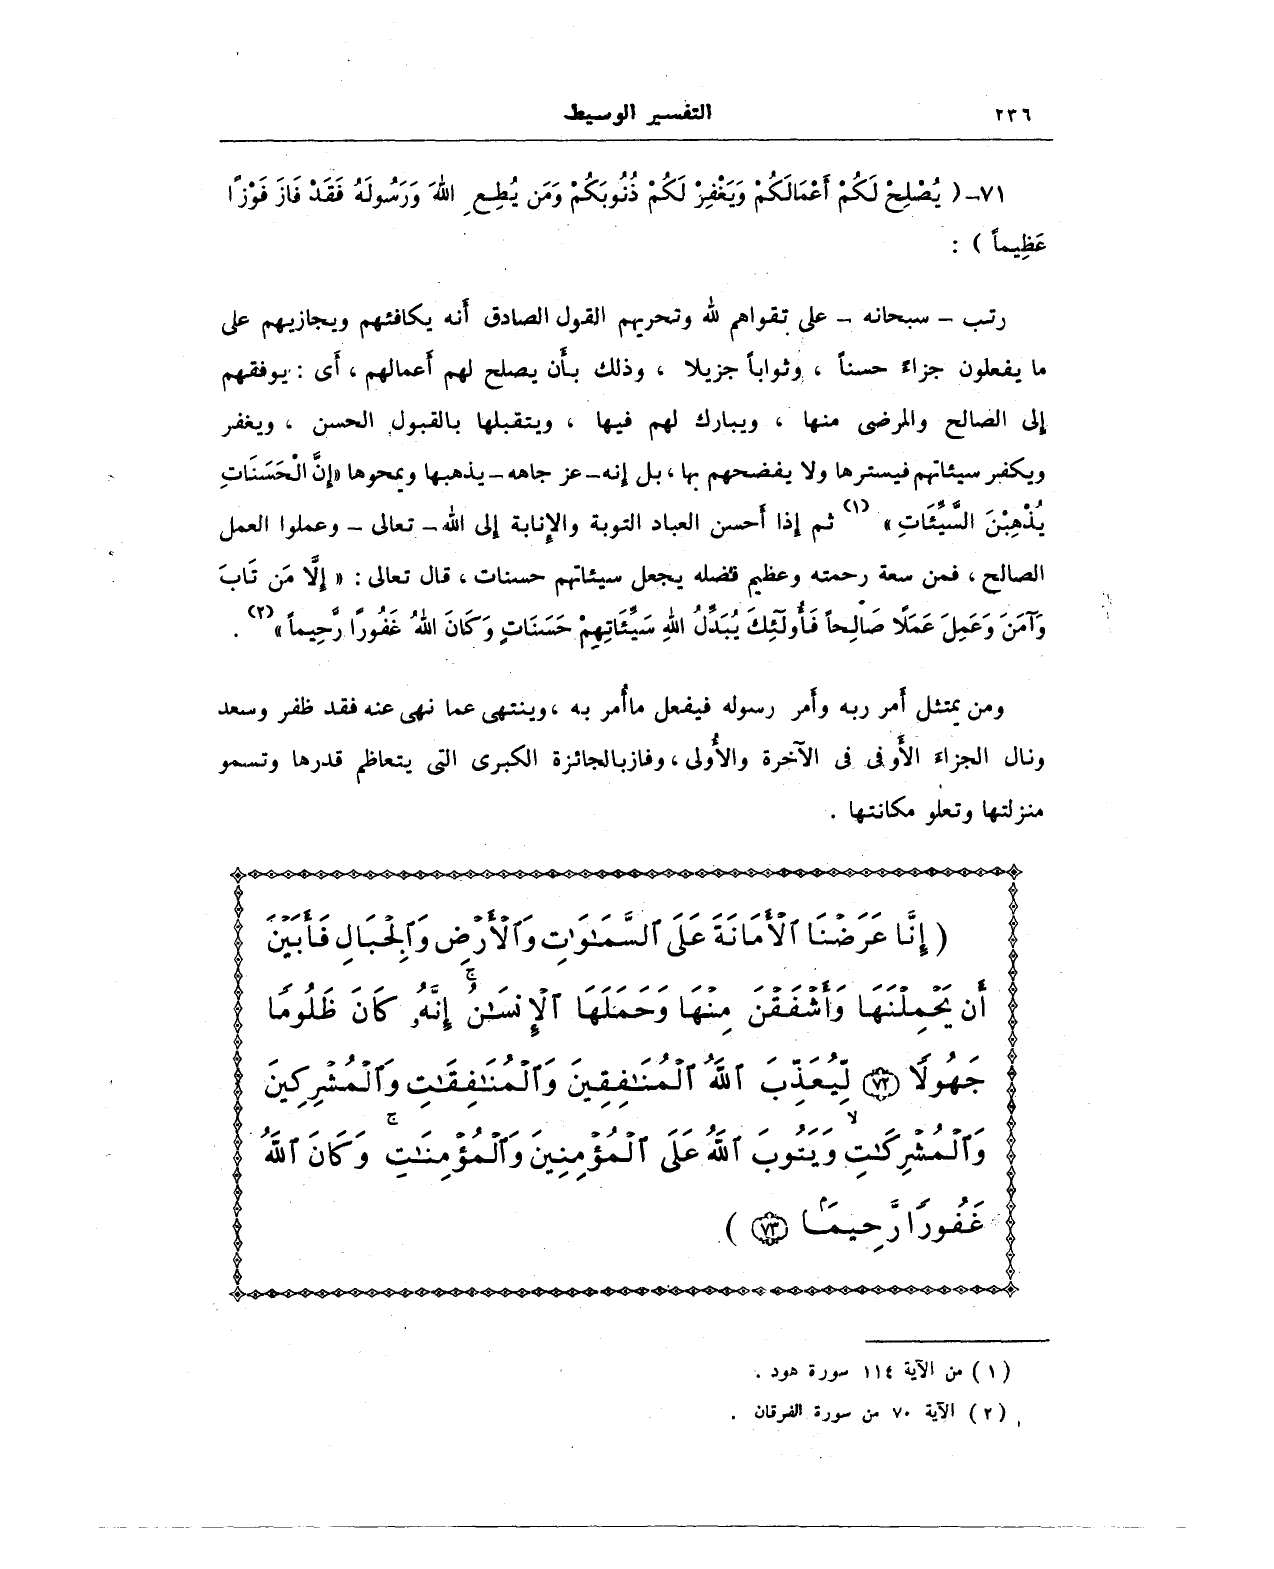 ٢٣٦
التفسير الوسيط
٧١- ( يُصْلِحْ لَكُمْ أَعْمَالَكُمْ وَيَغْفِرْ لَكُمْ ذُنُوبَكُمْ وَمَن يُطِعِ اللهَ وَرَسُولَهُ فَقَدْ فَازَ فَوْزًا
عَظِيماً ) :
رتب – سبحانه – على تقواهم لله وتحريهم القول الصادق أنه يكافئهم ويجازيهم على
ما يفعلون جزاءً حسناً ، وثواباً جزيلا ، وذلك بأن يصلح لهم أعمالهم ، أى : يوفقهم
إلى الصالح والمرضى منها ، ويبارك لهم فيها ، ويتقبلها بالقبول الحسن ، ويغفر
ويكفر سيئاتهم فيسترها ولا يفضحهم بها ، بل إنه – عز جاهه – يذهبها ويمحوها «إِنَّ الْحَسَنَاتِ
يُذْهِبْنَ السَّيِّئَاتِ» (١) ثم إذا أحسن العباد التوبة والإنابة إلى الله – تعالى – وعملوا العمل
الصالح ، فمن سعة رحمته وعظيم فضله يجعل سيئاتهم حسنات ، قال تعالى : « إِلَّا مَن تَابَ
وَآمَنَ وَعَمِلَ عَمَلًا صَالِحاً فَأُولَٰٓئِكَ يُبَدِّلُ اللهِ سَيِّئَاتِهِمْ حَسَنَاتٍ وَكَانَ اللهُ غَفُورًا رَّحِيماً» (٢) .
ومن يمتثل أمر ربه وأمر رسوله فيفعل ما أُمر به ، وينتهى عما نهى عنه فقد ظفر وسعد
ونال الجزاء الأَوفى فى الآخرة والأُولى ، وفاز بالجائزة الكبرى التى يتعاظم قدرها وتسمو
منزلتها وتعلو مكانتها .
( إِنَّا عَرَضْنَا ٱلْأَمَانَةَ عَلَى ٱلسَّمَٰوَٰتِ وَٱلْأَرْضِ وَٱلْجِبَالِ فَأَبَيْنَ
أَن يَحْمِلْنَهَا وَأَشْفَقْنَ مِنْهَا وَحَمَلَهَا ٱلْإِنسَٰنُ ۖ إِنَّهُۥ كَانَ ظَلُومًا
جَهُولًا ٧٢ لِّيُعَذِّبَ ٱللَّهُ ٱلْمُنَٰفِقِينَ وَٱلْمُنَٰفِقَٰتِ وَٱلْمُشْرِكِينَ
وَٱلْمُشْرِكَٰتِ وَيَتُوبَ ٱللَّهُ عَلَى ٱلْمُؤْمِنِينَ وَٱلْمُؤْمِنَٰتِ ۚ وَكَانَ ٱللَّهُ
غَفُورًا رَّحِيمَۢا ٧٣ )
( ١ ) من الآية ١١٤ سورة هود .
( ٢ ) الآية ٧٠ من سورة الفرقان .